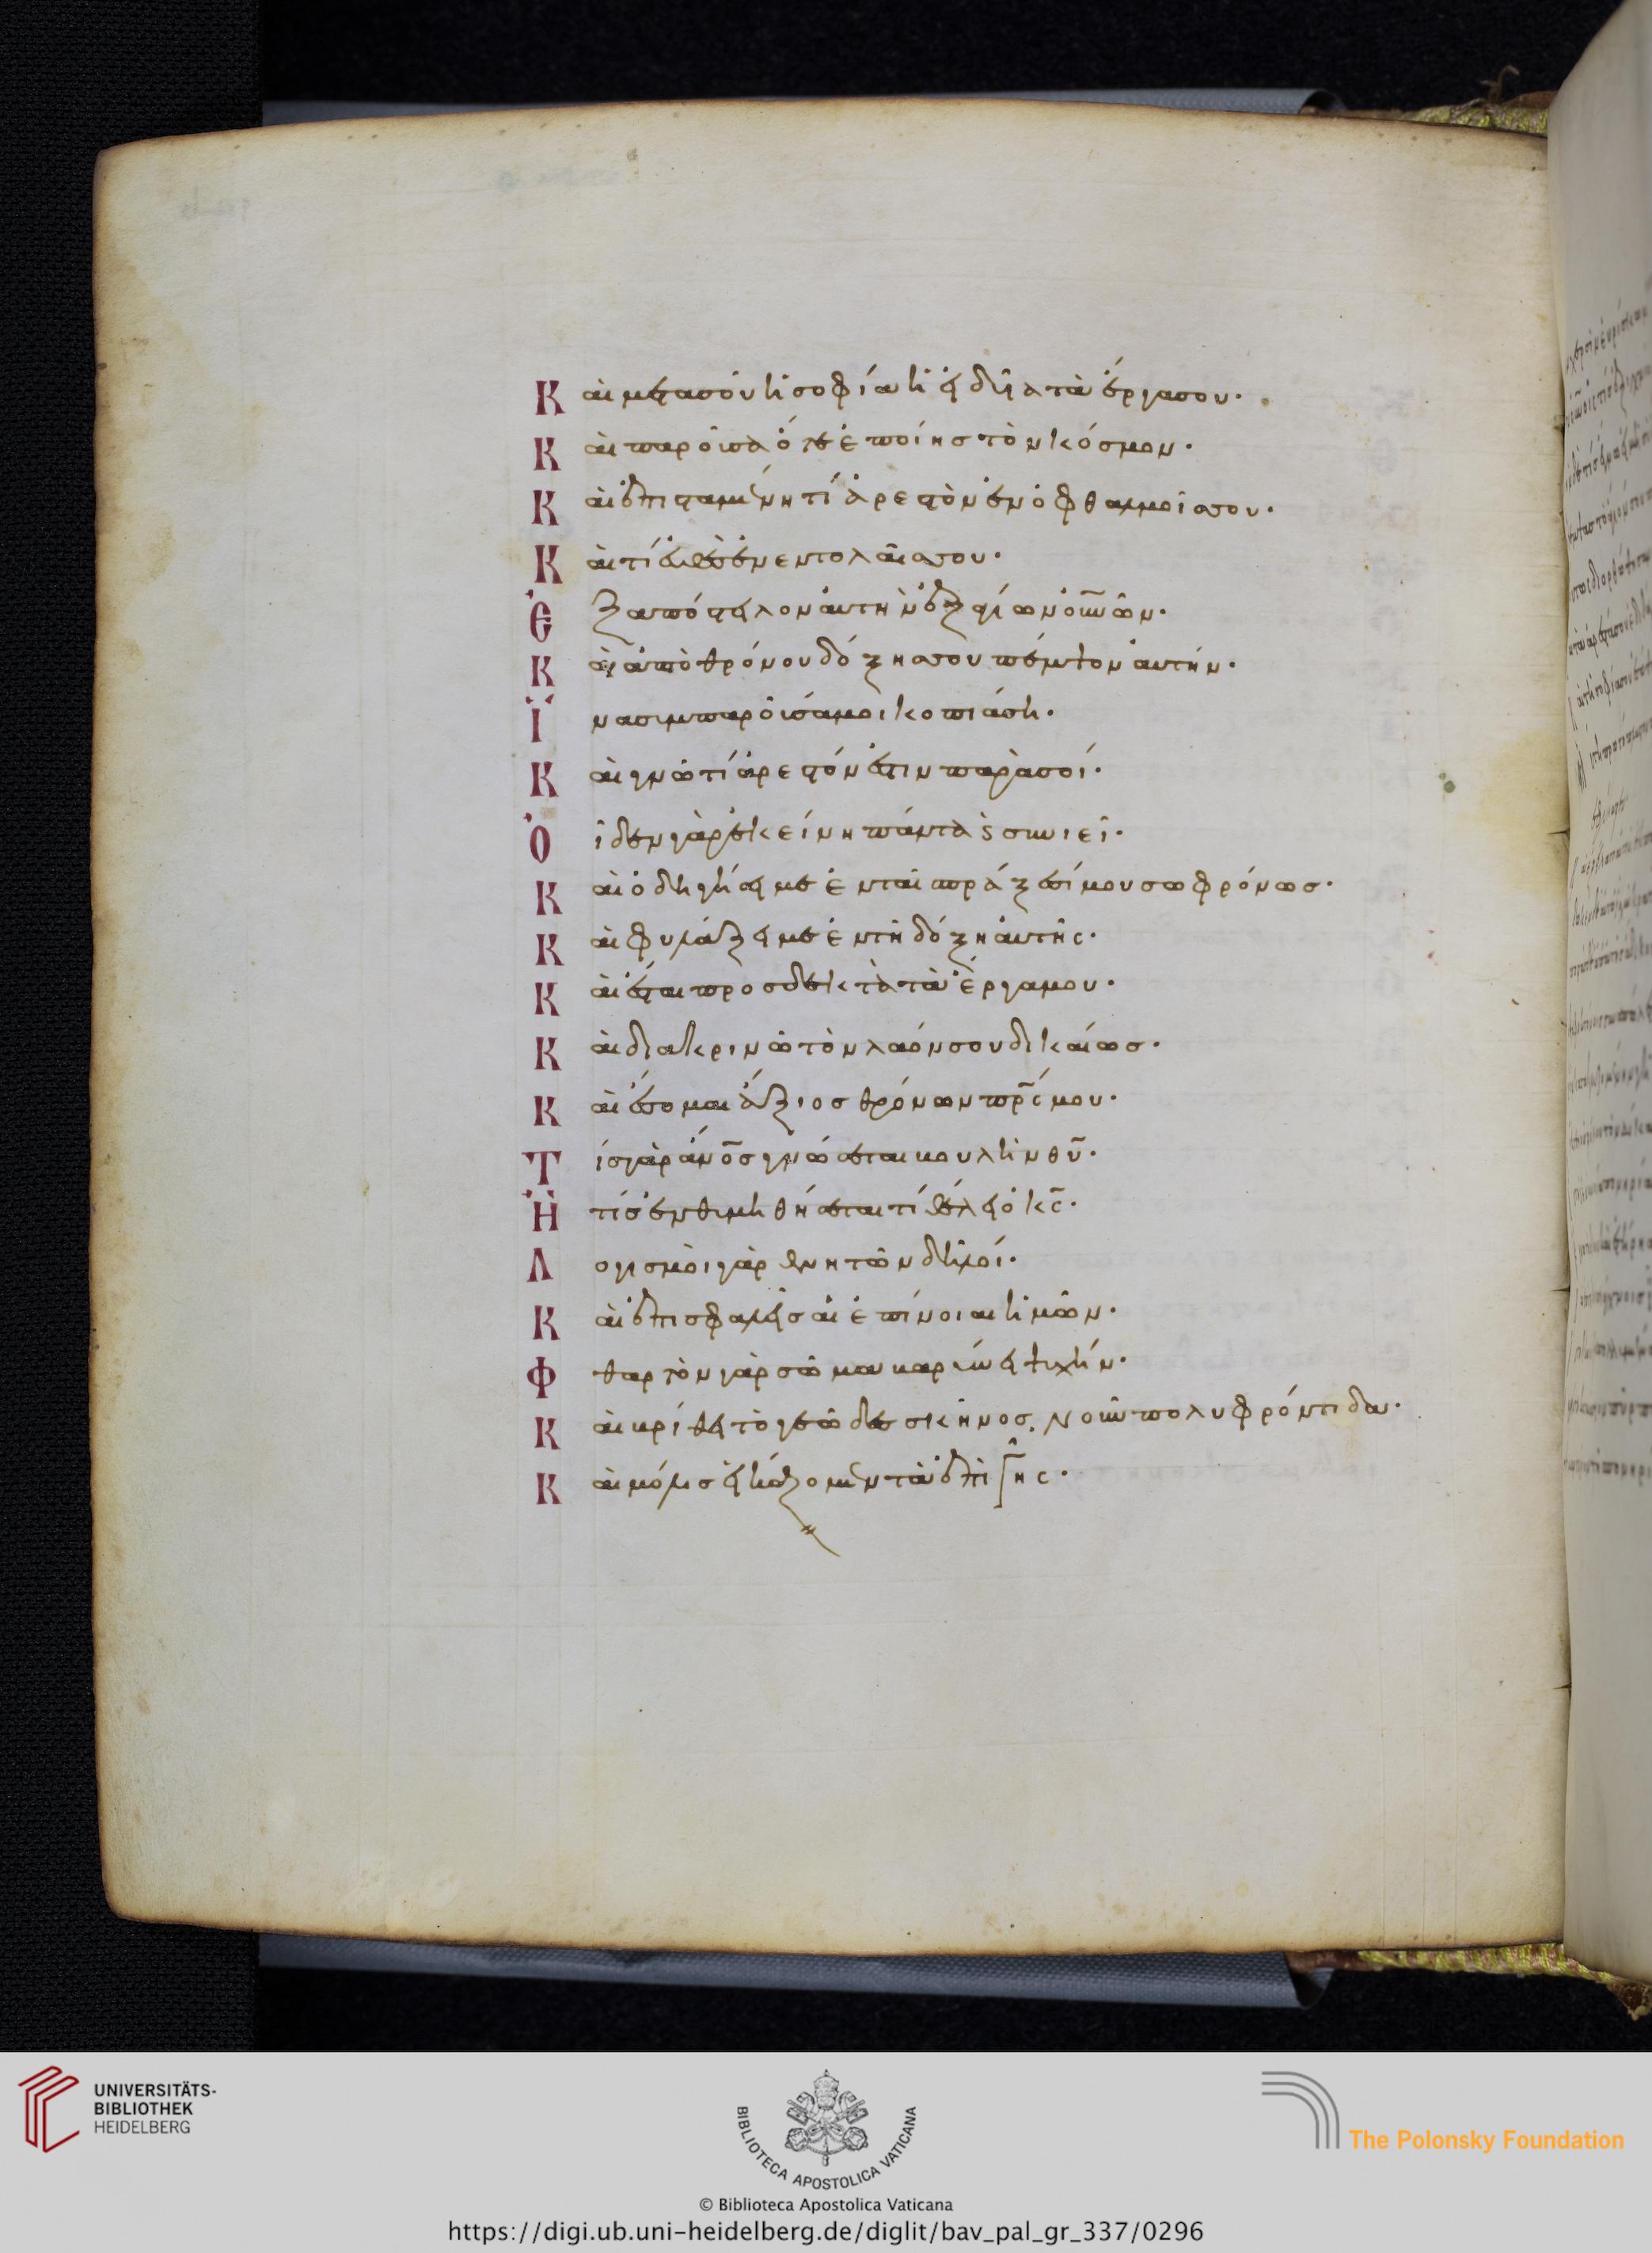 Καὶ μετὰ σοῦ ἡ σοφία ἡ εἰδυῖα τὰ ἔργα σου·
Καὶ παροῦσα ὅτε ἐποίησ τὸν κόσμον·
Καὶ ἐπισταμένη τί ἀρεστὸν ἐν ὀφθαλμοῖσ σου·
Καὶ τί εὐθὲσ ἐν ἐντολαῖσ σου·
Ἐξαπόστειλον αὐτὴν ἐξ ἁγίων οὐνῶν·
Καὶ ἀπὸ θρόνου δόξησ σου πέμψον αὐτήν·
Ἵνα συμπαροῦσά μοι κοπιάση·
Καὶ γνῶ τί ἀρεστόν ἐστιν παρὰ σοί·
Οἶδεν γὰρ ἐκείνη πάντα ϗ συνιεῖ·
Καὶ ὁδηγήσει με ἐν ταῖσ πράξεσί μου σωφρόνωσ·
Καὶ φυλάξει με ἐν τῆ δόξη αὐτῆς·
Καὶ ἔσται προσδεκτὰ τὰ ἔργα μου·
Καὶ διακρινῶ τὸν λαόν σου δικαίωσ·
Καὶ ἔσομαι ἄξιοσ θρόνων πρς μου·
Τίσ γὰρ ἄνοσ γνώσεται βουλὴν θυ·
Ἢ τίσ ἐνθυμηθήσεται τί θέλει ὁ κς·
Λογισμοὶ γὰρ θνητῶν δειλοί·
Καὶ ἐπισφαλεῖσ αἱ ἐπίνοιαι ἡμῶν·
Φθαρτὸν γὰρ σῶμα βαρύνει ψυχήν·
Καὶ βρίθει τὸ γεῶδεσ σκῆνοσ, νοῦν πολυφρόντιδα·
Καὶ μόλισ εἰκάζομεν τὰ ἐπὶ γῆς·
UNIVERSITÄTS-
BIBLIOTHEK
HEIDELBERG
BIBLIOTECA APOSTOLICA VATICANA
The Polonsky Foundation
© Biblioteca Apostolica Vaticana
https://digi.ub.uni-heidelberg.de/diglit/bav_pal_gr_337/0296